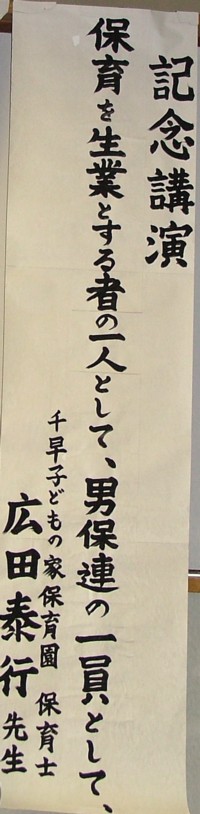 記念講演
保育を生業とする者の一人として、男保連の一員として、
千早子どもの家保育園 保育士
広田泰行 先生